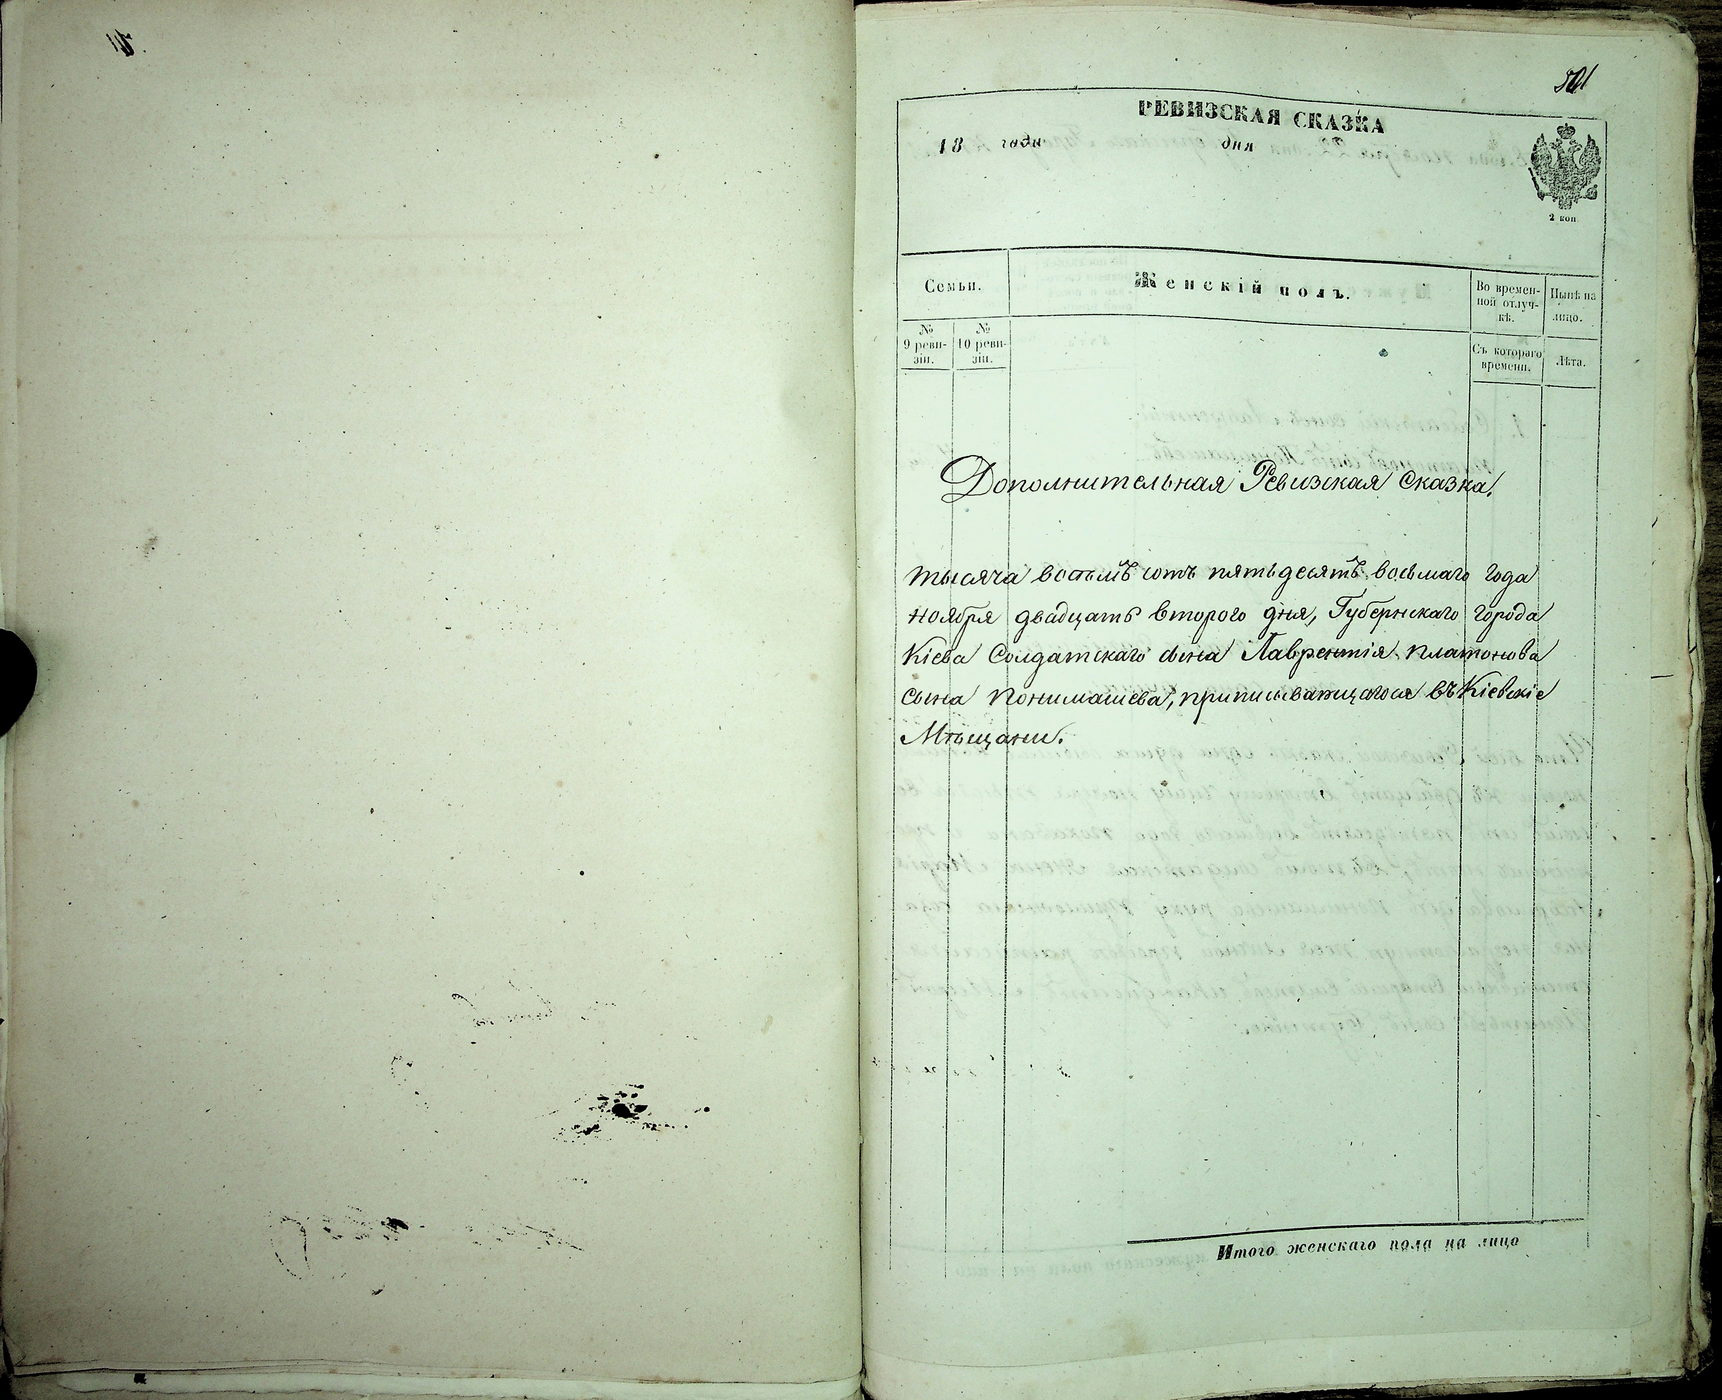 501
РЕВИЗСКАЯ СКАЗКА
18 года дня
2 коп.
Семьи.
Женскій полъ.
Во времен-
ной отлуч-
кѣ.
Нынѣ на
лицо.
№
9 реви-
зіи.
№
10 реви-
зіи.
Съ котораго
времени.
Лѣта.
Дополнительная Ревизская Сказка.
тысяча восьмъ сотъ пятьдесятъ восьмаго года
ноября двадцать второго дня, Губернскаго города
Кіева Солдатскаго сына Лаврентія Платонова
сына Понимашева, приписывающагося въ Кіевскіе
Мѣщани.
Итого женскаго пола на лицо